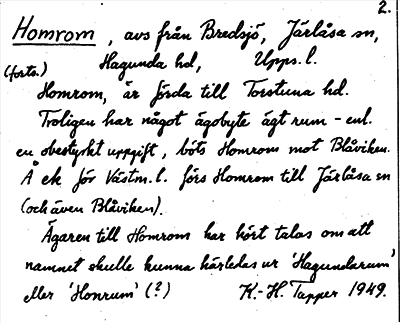 2.
Homrom, avs från Bredsjö, Järlåsa sn,
(forts.) Hagunda hd, Upps. l.
Homrom, är förda till Torstuna hd.
Troligen har något ägobyte ägt rum - enl.
en obestyrkt uppgift, böts Homrom mot Blåviken.
Å ek för Västm. l. förs Homrom till Järlåsa sn
(och även Blåviken).
Ägaren till Homrom har hört talas om att
namnet skulle kunna härledas ur 'Hagundarum'
eller 'Honrum' (?) K.-H. Tapper 1949.